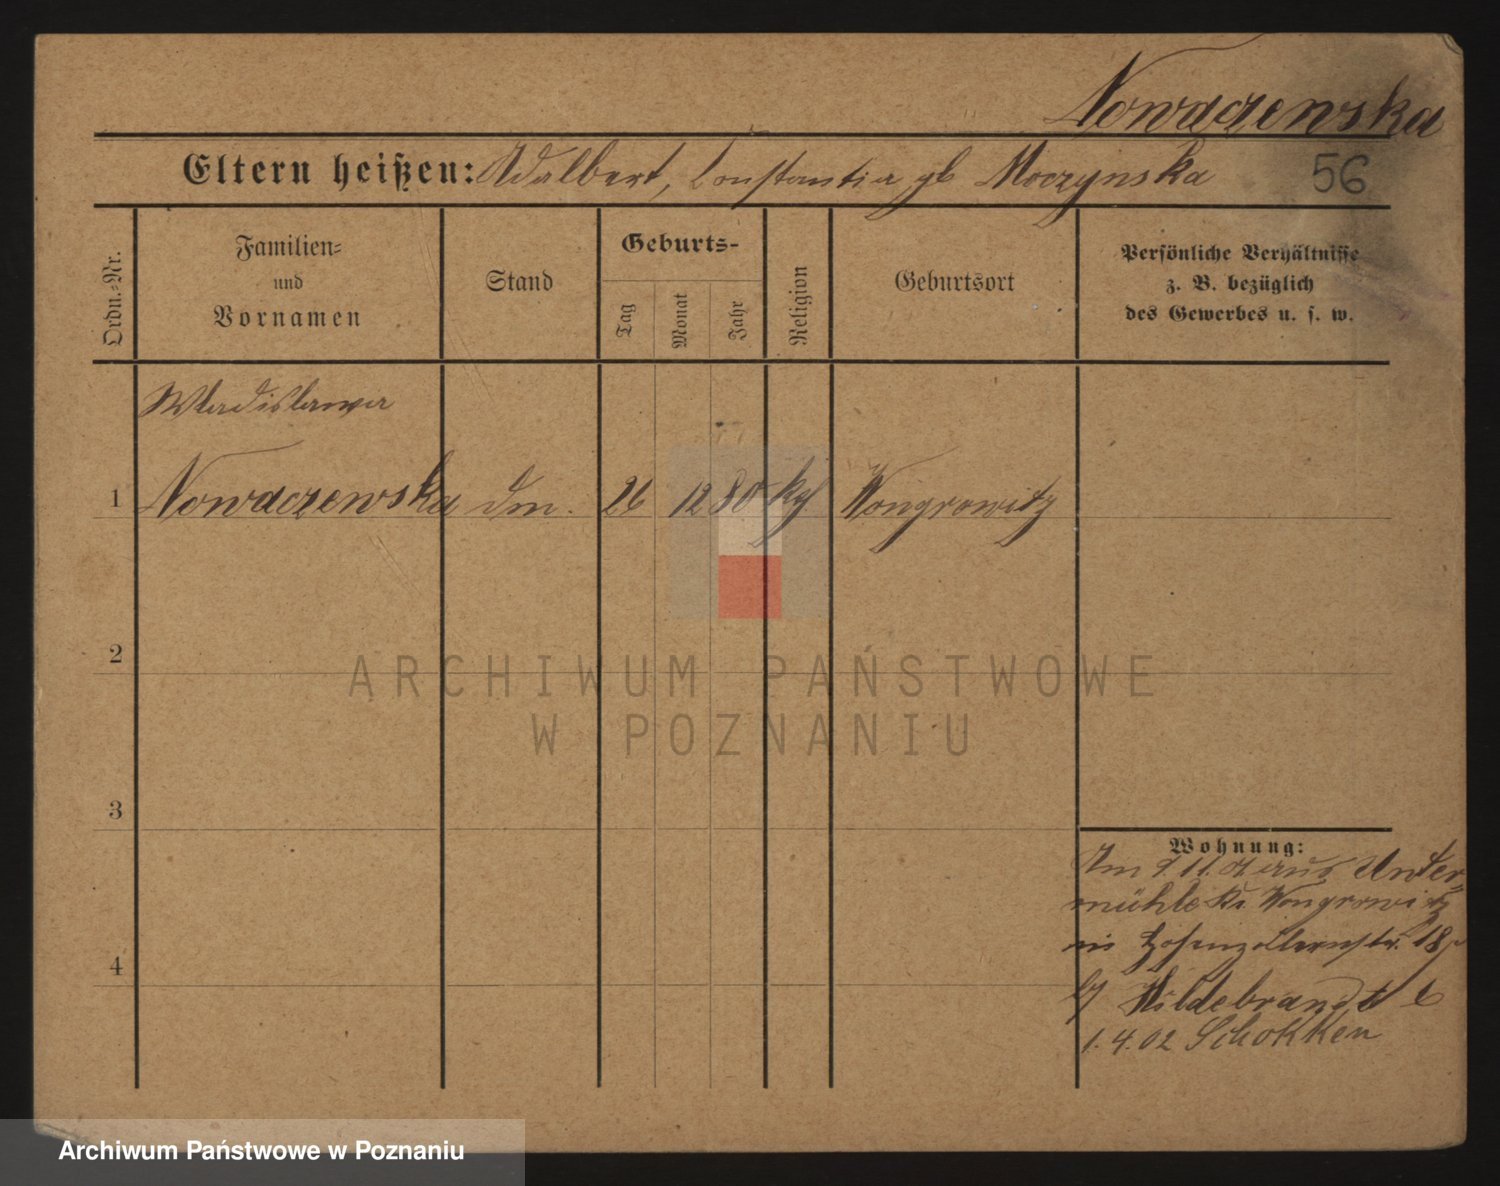 Nowaczewska
Eltern heißen: Adalbert, Constantia gb Moczynska
56
Ordn.-Nr.
Familien- und Vornamen
Stand
Geburts-
Tag
Monat
Jahr
Religion
Geburtsort
Persönliche Verhältnisse
z. B. bezüglich
des Gewerbes u. s. w.
Wladislawa
1 Nowaczewska dm. 26 12 80 kth Wongrowitz
2
3
4
Wohnung:
aus Unter-
mühle Kr. Wongrowitz
Hohenzollernstr. 18
Hildebrandt
1.4.02 Schokken
ARCHIWUM PAŃSTWOWE
W POZNANIU
Archiwum Państwowe w Poznaniu